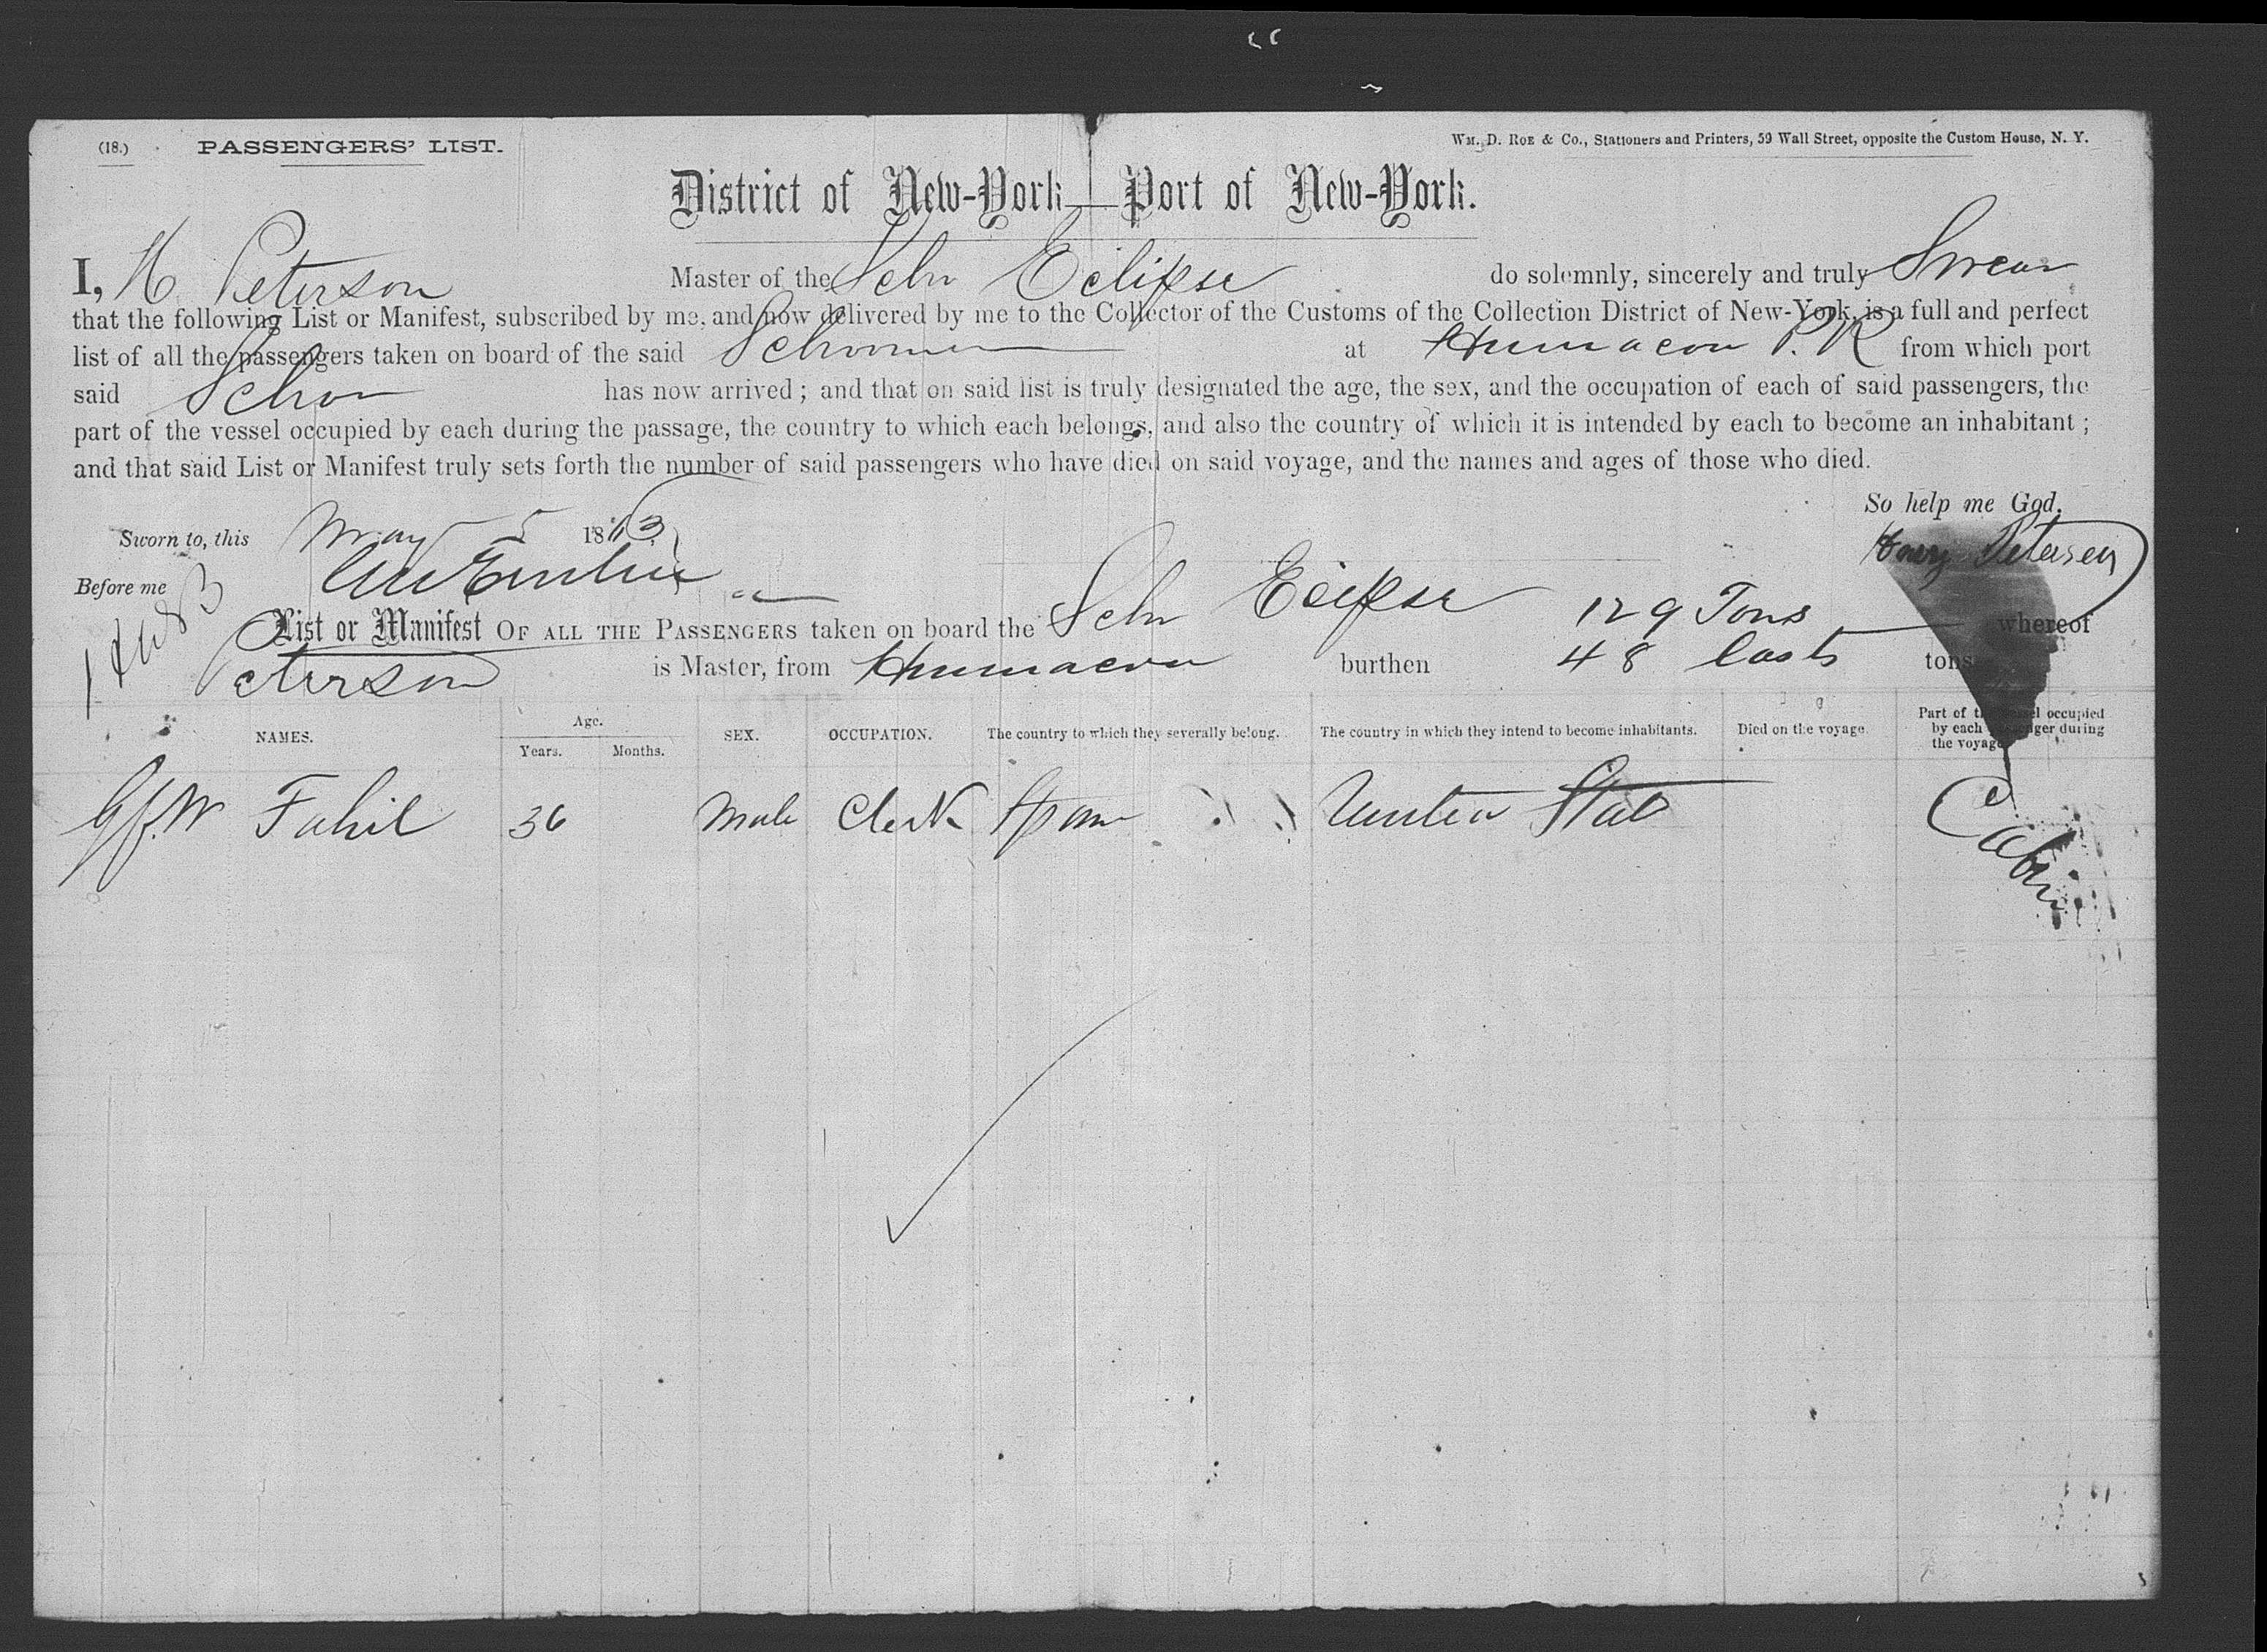 (18.) PASSENGERS' LIST. WM. D. ROE & CO., Stationers and Printers, 59 Wall Street, opposite the Custom House, N. Y.
District of New-York—Port of New-York.
I, H Peterson Master of the Schr Eclipse do solemnly, sincerely and truly Swear
that the following List or Manifest, subscribed by me, and now delivered by me to the Collector of the Customs of the Collection District of New-York, is a full and perfect
list of all the passengers taken on board of the said Schooner at Humacoa P.R from which port
said Schor has now arrived; and that on said list is truly designated the age, the sex, and the occupation of each of said passengers, the
part of the vessel occupied by each during the passage, the country to which each belongs, and also the country of which it is intended by each to become an inhabitant;
and that said List or Manifest truly sets forth the number of said passengers who have died on said voyage, and the names and ages of those who died.
So help me God.
Sworn to, this May 5 1873
Petersen
Before me
List or Manifest OF ALL THE PASSENGERS taken on board the Schr Eclipse 129 Tons whereof
Peterson is Master, from Humacoa burthen 48 lasts tons
NAMES. Age. Years. Months. SEX. OCCUPATION. The country to which they severally belong. The country in which they intend to become inhabitants. Died on the voyage Part of the vessel occupied by each passenger during the voyage
W Fahil 36 Male Clerk Spain United Stat Cabin